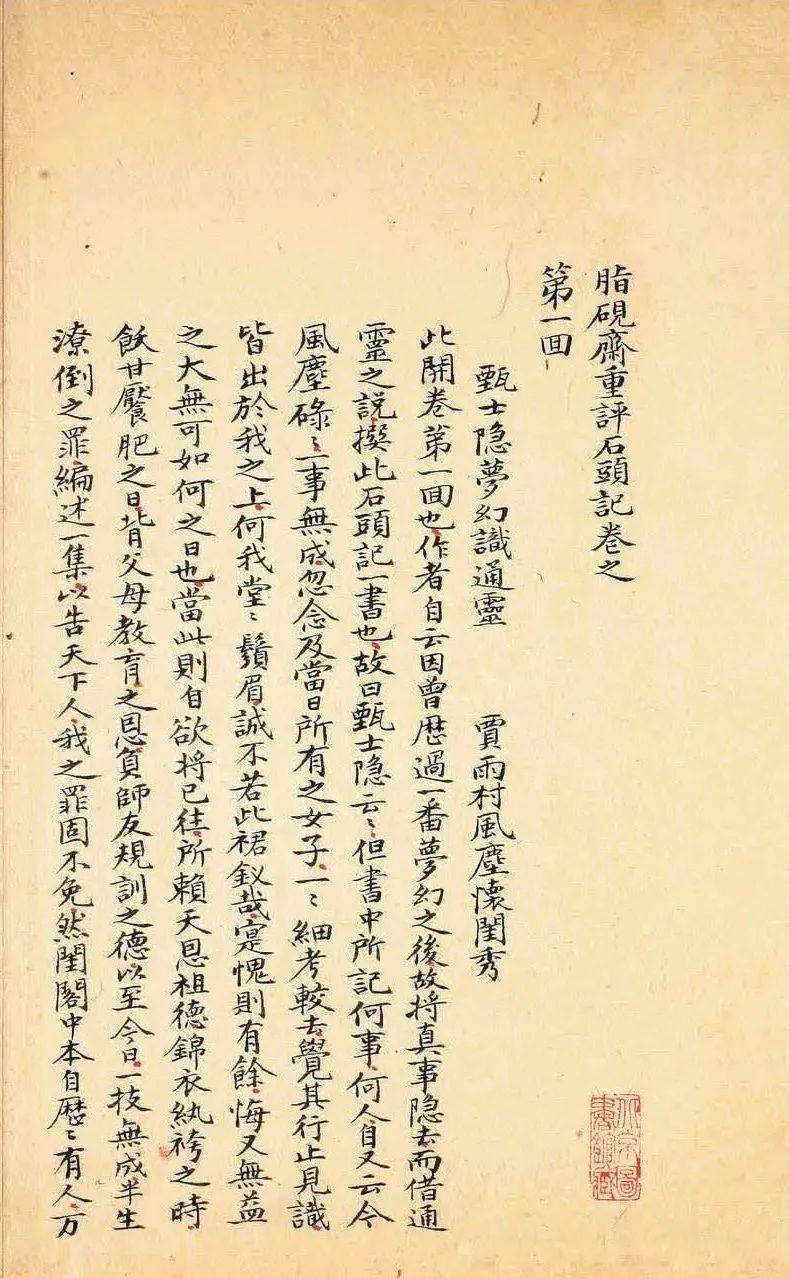 脂硯齋重評石頭記卷之
第一回
甄士隐夢幻識通靈　賈雨村風塵懷閨秀
此開卷第一回也作者自云因曾歴過一番夢幻之後故将真事隐去而借通
靈之說撰此石頭記一書也故曰甄士隐云〻但書中所記何事何人自又云今
風塵碌〻一事無成忽念及當日所有之女子一〻細考較去覺其行止見識
皆出於我之上何我堂〻鬚眉誠不若此裙釵哉寔愧則有餘悔又無益
之大無可如何之日也當此則自欲将已徃所賴天恩祖德錦衣紈袴之時
飫甘饜肥之日背父母教育之恩負師友規訓之德以至今日一技無成半生
潦倒之罪編述一集以告天下人我之罪固不免然閨閣中本自歴〻有人万
北京圖
書館藏